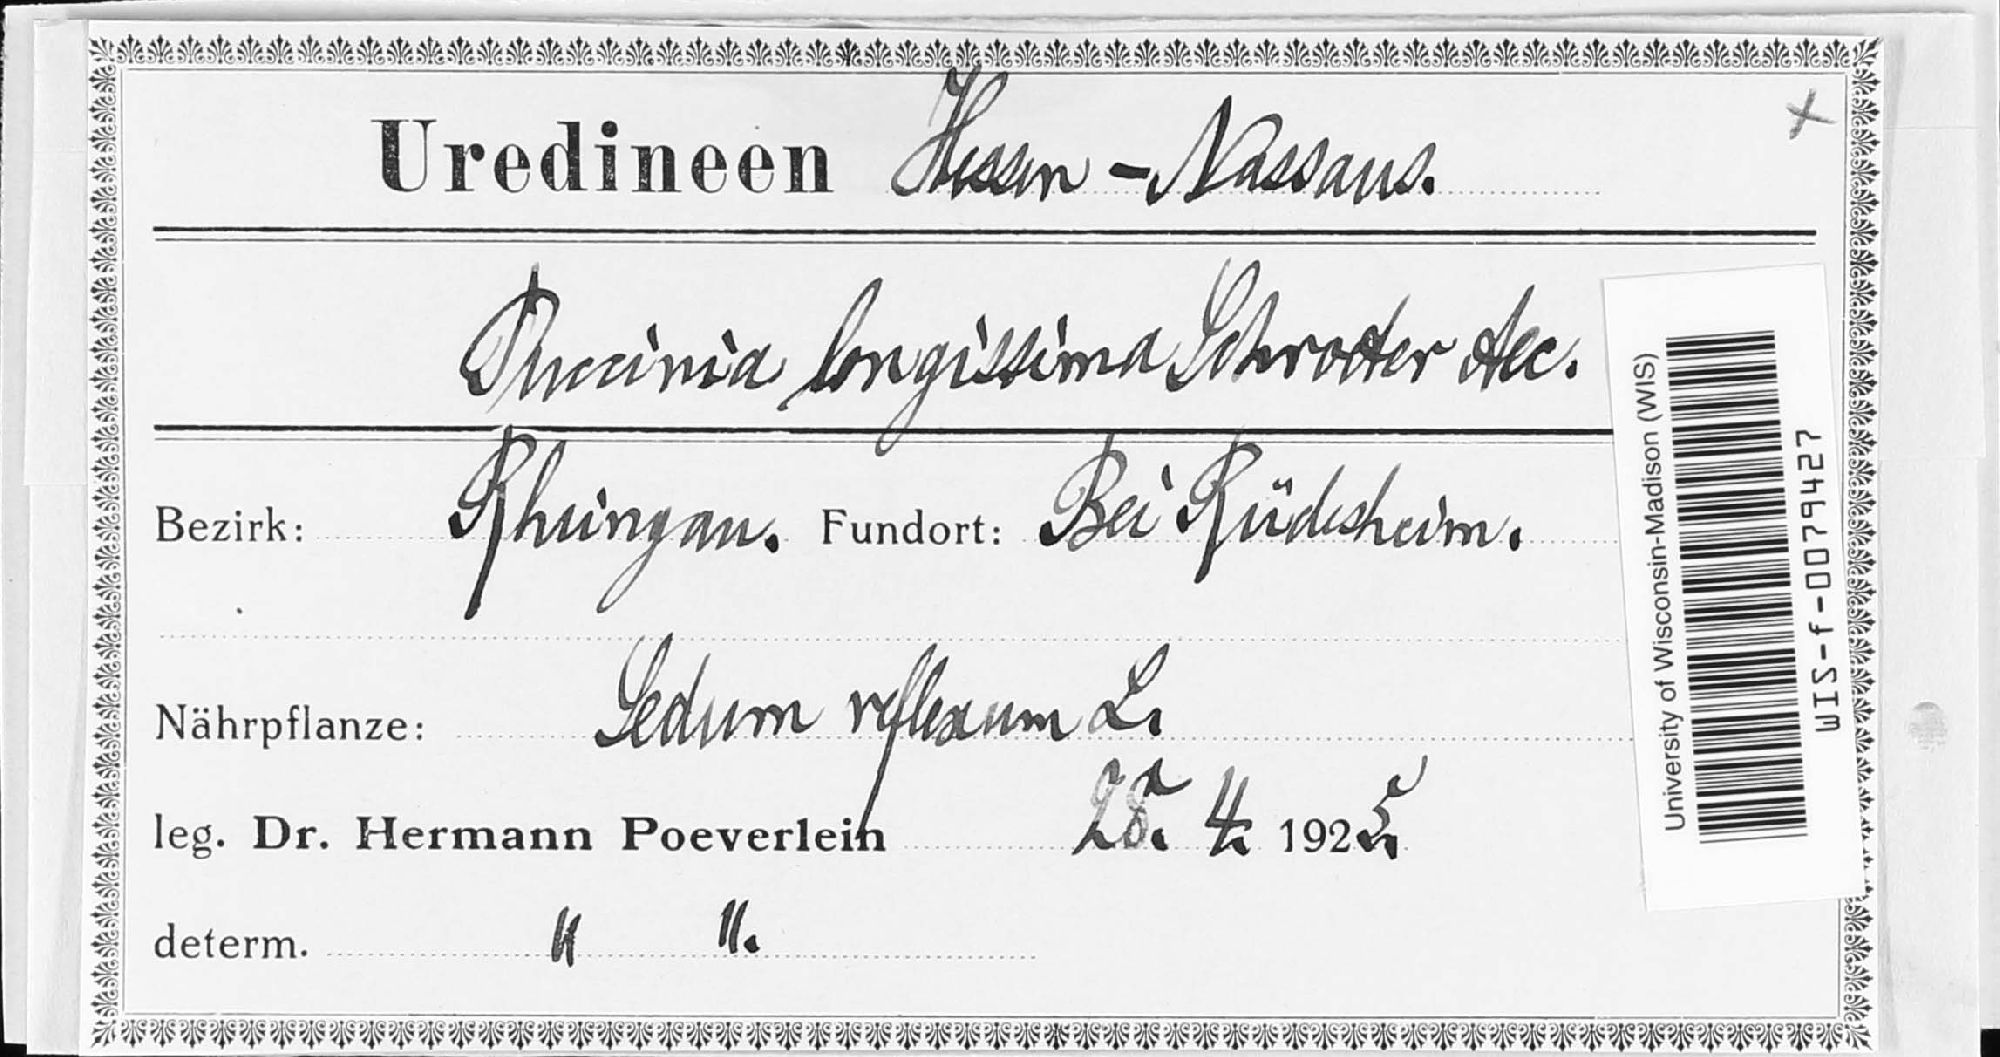 Uredineen Hessen-Nassaus.
Puccinia longissima Schroeter Aec.
Bezirk: Rheingau. Fundort: Bei Rüdesheim.
Nährpflanze: Sedum reflexum L.
leg. Dr. Hermann Poeverlein 4. 1925
determ. " ".
University of Wisconsin-Madison (WIS)
WIS-f-0079427